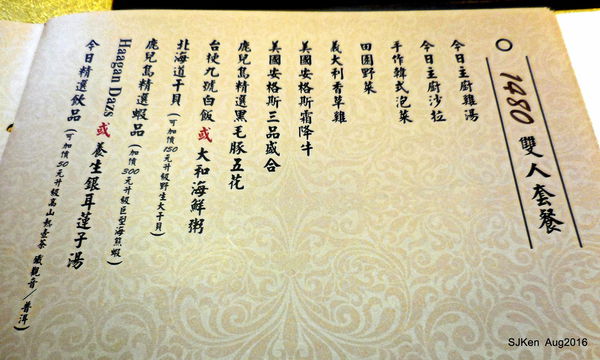 1480 雙人套餐
今日主廚雞湯
今日主廚沙拉
手作韓式泡菜
田園野菜
義大利香草雞
美國安格斯霜降牛
美國安格斯三品盛合
鹿兒島精選黑毛豚五花
台梗九號白飯 或 大和海鮮粥
北海道干貝 (可加價150元升級野生大干貝)
鹿兒島精選蝦品 (加價300元升級巨型海熊蝦)
Haagan Dazs 或 養生銀耳蓮子湯
今日精選飲品 (可加價50元升級高山熱壺茶 鐵觀音/普洱)
SJKen Aug2016